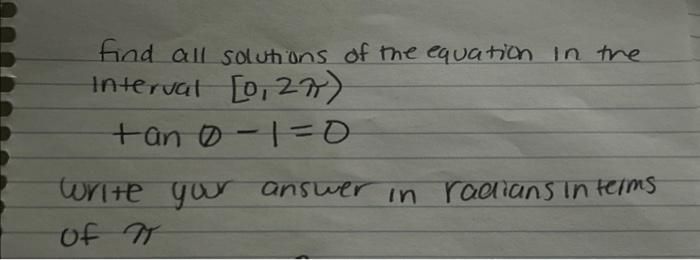 find all solutions of the equation in the
interval [0, 2π)
tan θ - 1 = 0
write your answer in radians in terms
of π